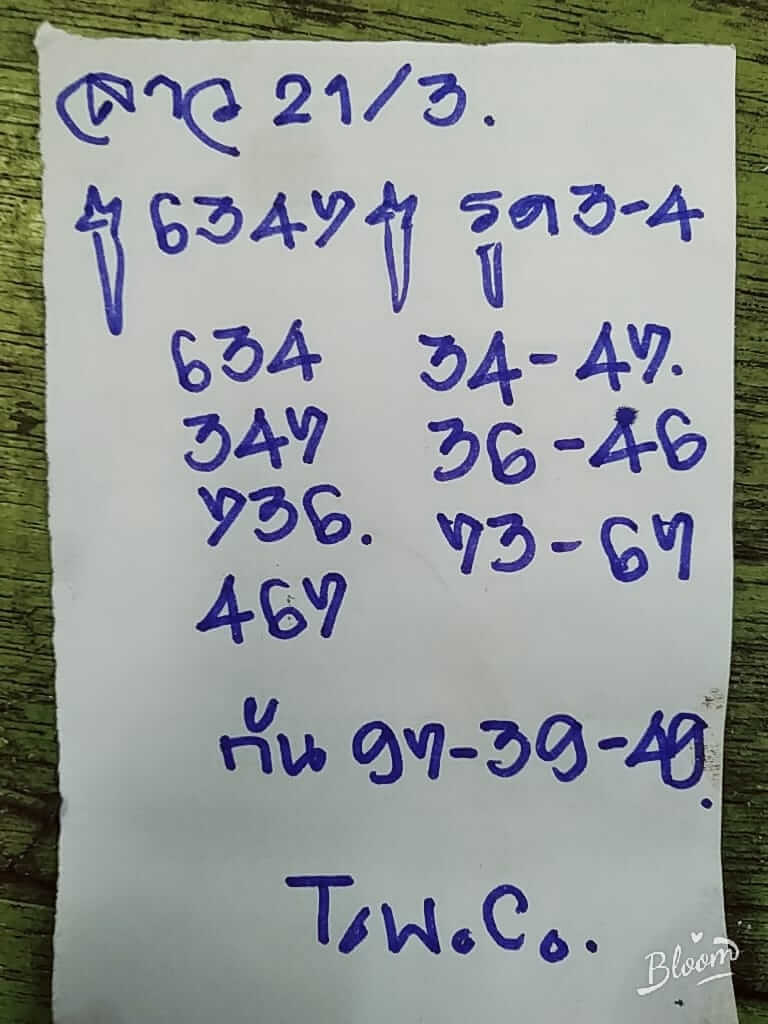 ลาว 21/3.
6347 รูด 3-4
634 34-47.
347 36-46
736. 73-67
467
กัน 97-39-49.
T.W.C..
Bloom